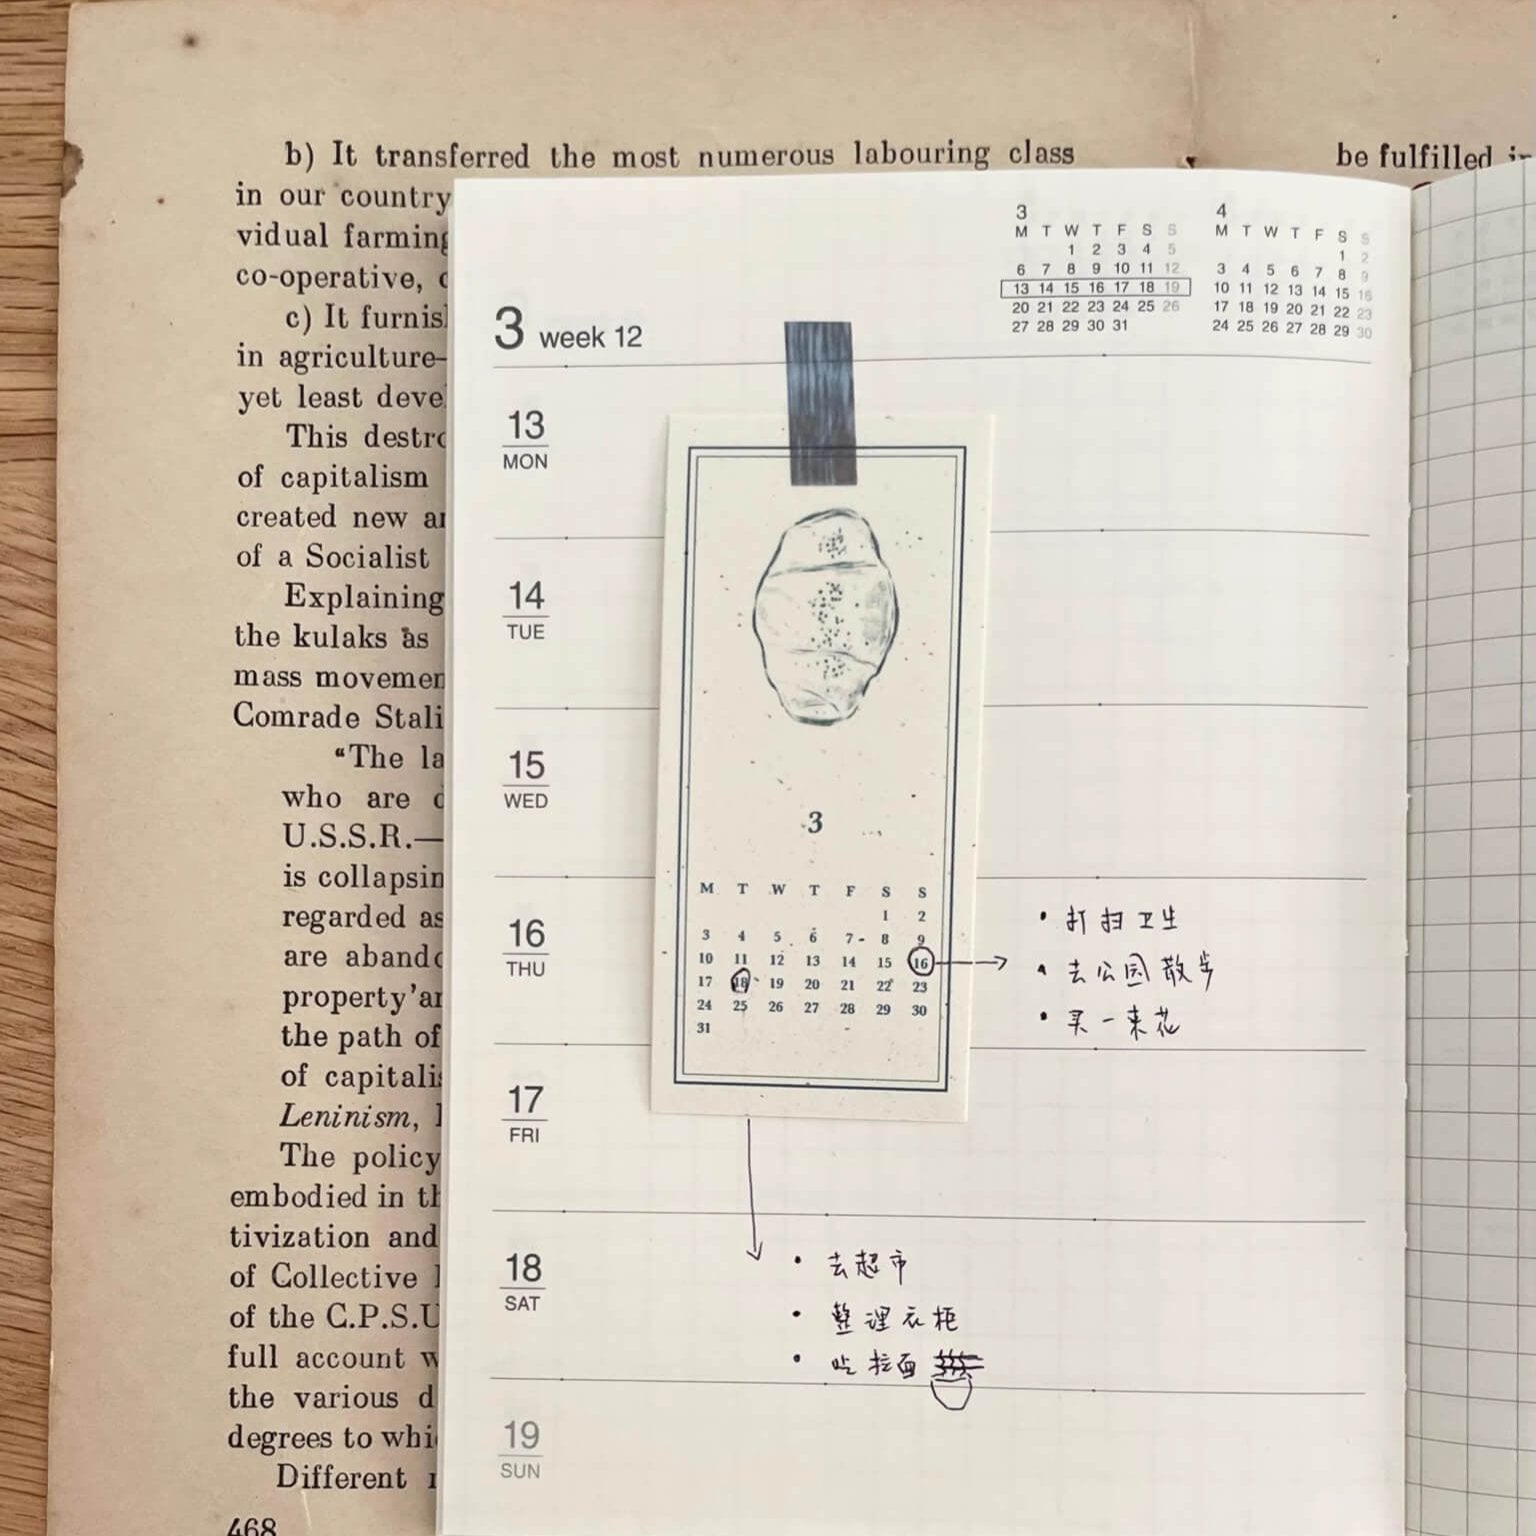 b) It transferred the most numerous labouring class
in our country
vidual farming
co-operative,
c) It furnis
in agriculture—
yet least deve
This destro
of capitalism
created new
of a Socialist
Explaining
the kulaks as
mass movemen
Comrade Stali
“The la
who are
U.S.S.R.—
is collapsin
regarded as
are aband
property
the path of
of capitali
Leninism,
The policy
embodied in
tivization and
of Collective
of the C.P.S.U
full account
the various d
degrees to whi
Different
468
be fulfilled in
3
M T W T F S S
1 2 3 4 5
6 7 8 9 10 11 12
13 14 15 16 17 18 19
20 21 22 23 24 25 26
27 28 29 30 31
4
M T W T F S S
1 2
3 4 5 6 7 8 9
10 11 12 13 14 15 16
17 18 19 20 21 22 23
24 25 26 27 28 29 30
3 week 12
13
MON
14
TUE
15
WED
16
THU
17
FRI
18
SAT
19
SUN
3
M T W T F S S
1 2
3 4 5 6 7 8 9
10 11 12 13 14 15 16
17 18 19 20 21 22 23
24 25 26 27 28 29 30
31
• 打扫卫生
• 去公园散步
• 买一束花
• 去超市
• 整理衣柜
• 吃拉面